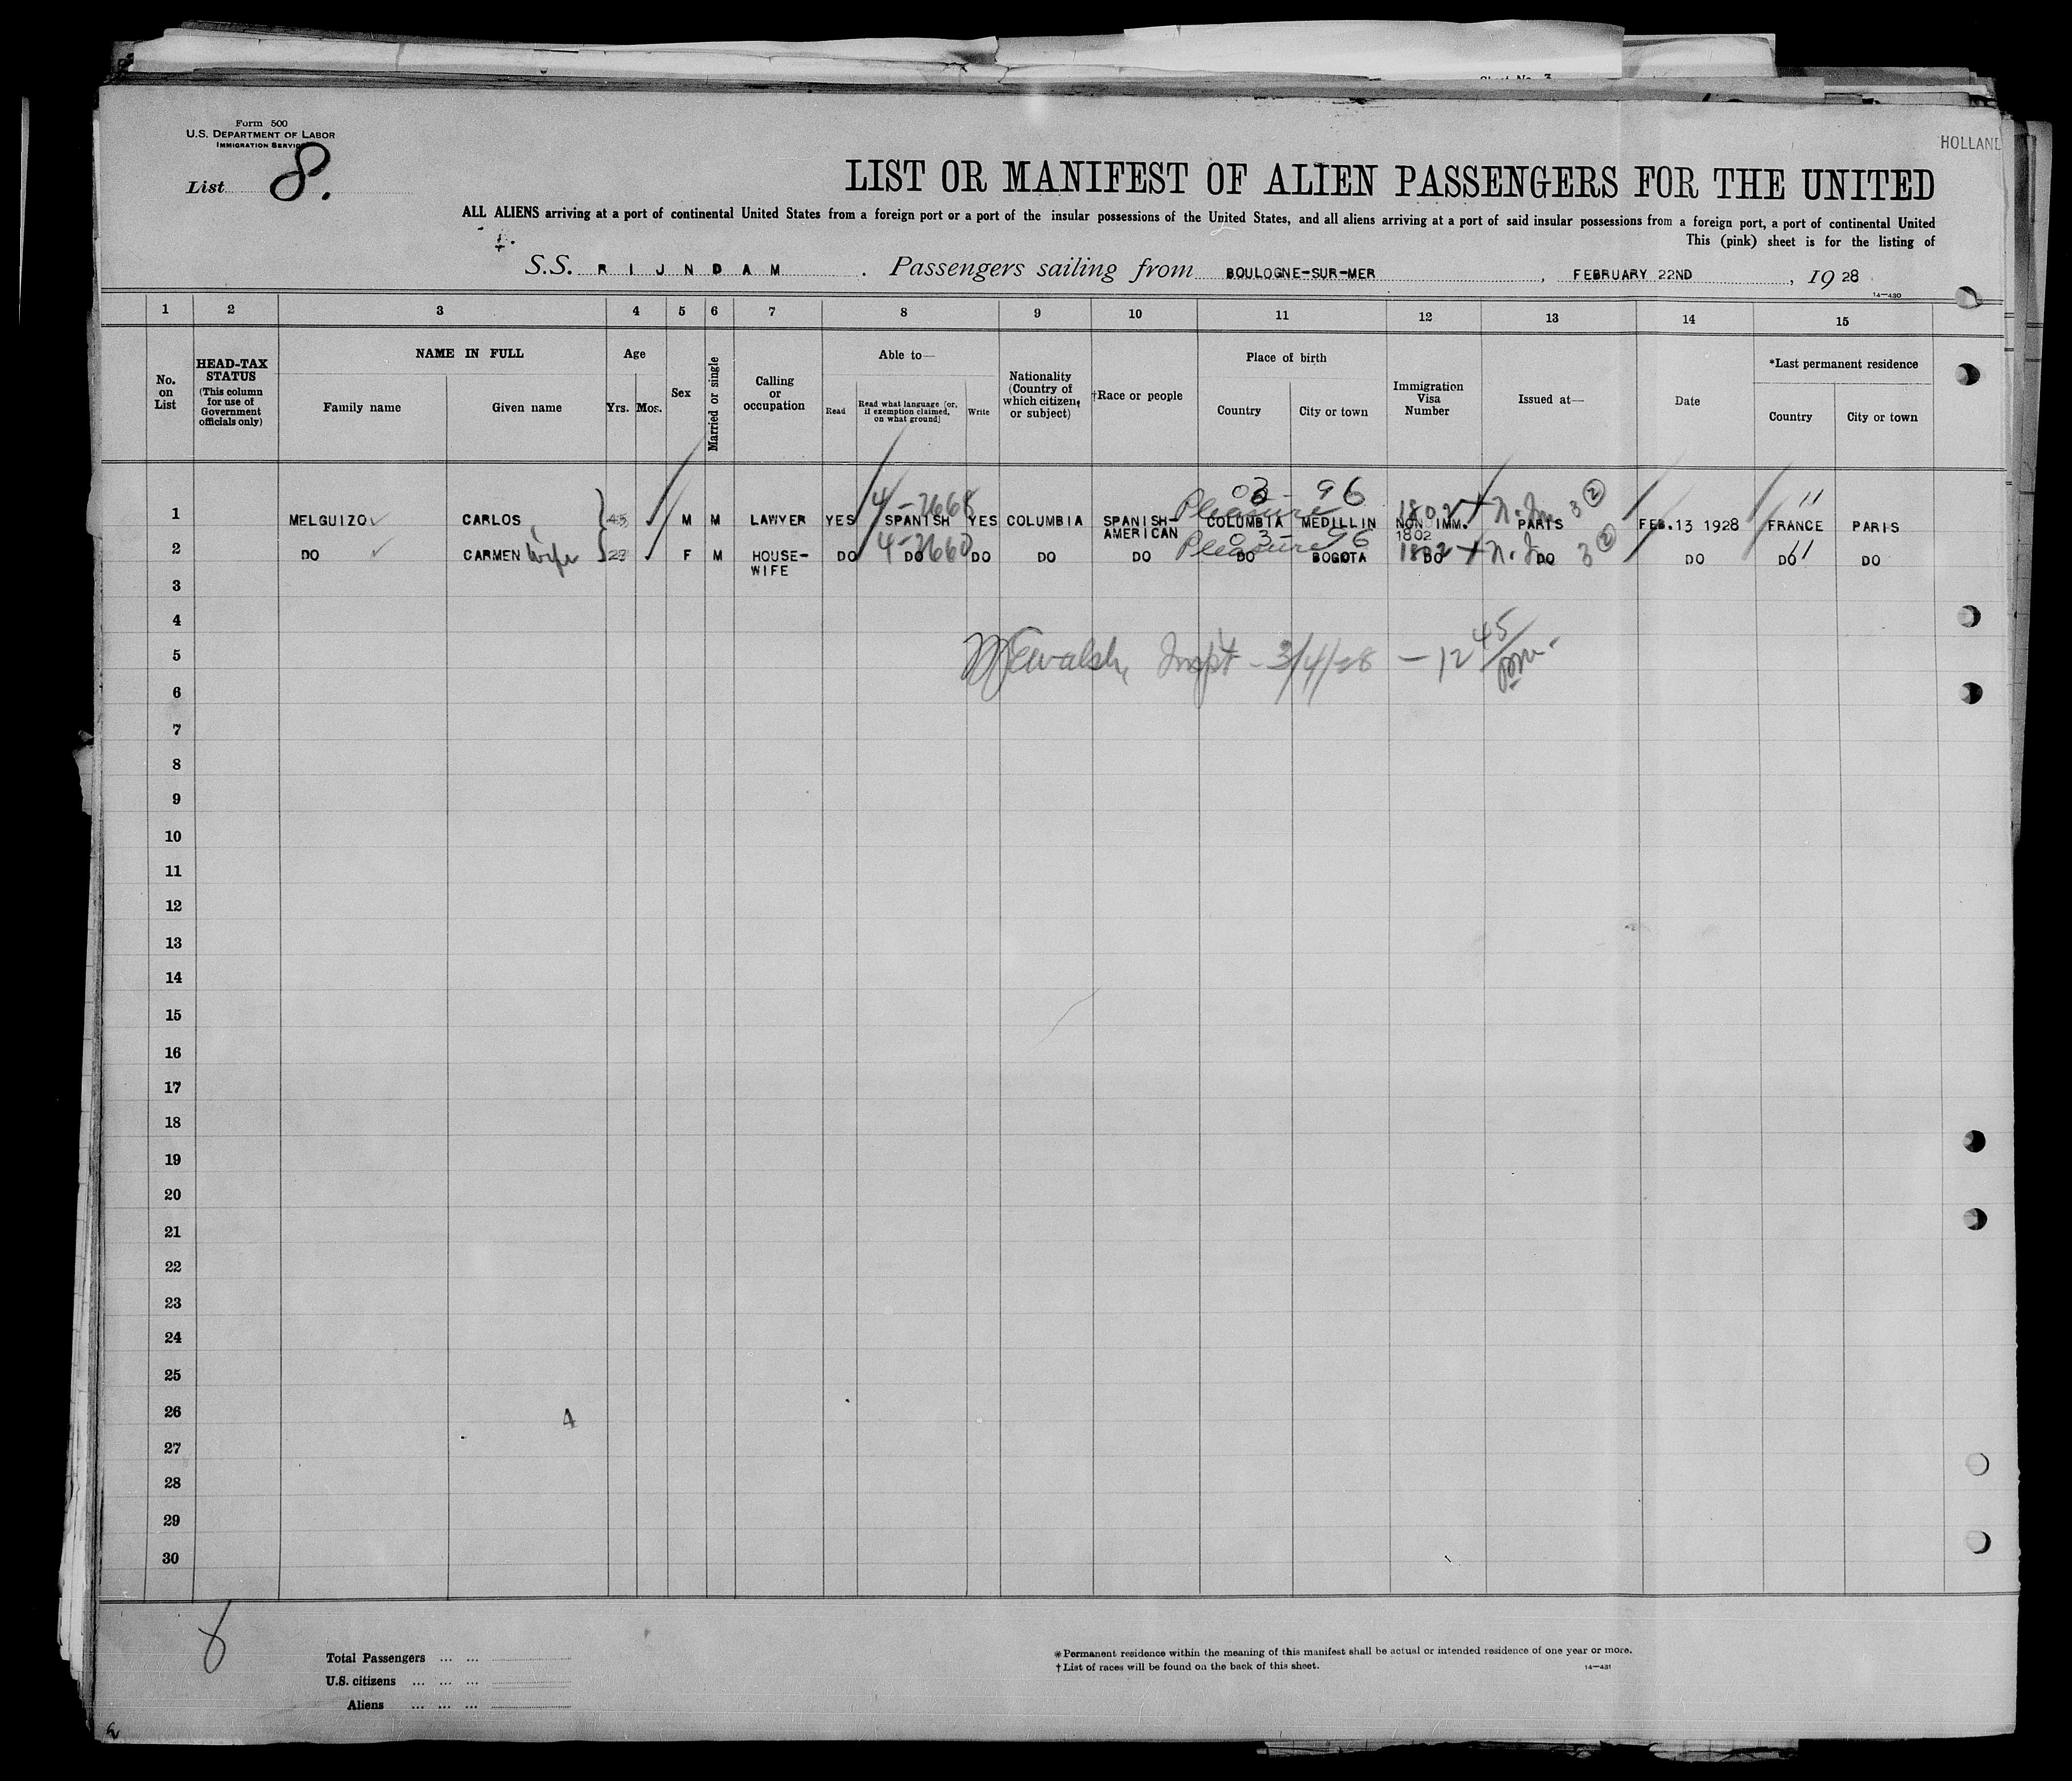 Sheet No. 3
Form 500
U.S. DEPARTMENT OF LABOR
IMMIGRATION SERVICE
HOLLAND
List 8.
LIST OR MANIFEST OF ALIEN PASSENGERS FOR THE UNITED
ALL ALIENS arriving at a port of continental United States from a foreign port or a port of the insular possessions of the United States, and all aliens arriving at a port of said insular possessions from a foreign port, a port of continental United
This (pink) sheet is for the listing of
S.S. RIJNDAM . Passengers sailing from BOULOGNE-SUR-MER , FEBRUARY 22ND , 19 28
14—430
1 2 3 4 5 6 7 8 9 10 11 12 13 14 15
No. on List
HEAD-TAX STATUS (This column for use of Government officials only)
NAME IN FULL
Family name Given name
Age
Yrs. Mos.
Sex
Married or single
Calling or occupation
Able to—
Read Read what language [or, if exemption claimed, on what ground] Write
Nationality (Country of which citizen or subject)
†Race or people
Place of birth
Country City or town
Immigration Visa Number
Issued at—
Date
*Last permanent residence
Country City or town
4-2668 03-96 1802 3 2 11
Pleasure
1 MELGUIZO CARLOS 45 M M LAWYER YES SPANISH YES COLUMBIA SPANISH-AMERICAN COLUMBIA MEDILLIN NON IMM. PARIS FEB.13 1928 FRANCE PARIS
4-2668 03-96 1802 3 2 11
Pleasure 1802
2 DO CARMEN wife F M HOUSE-WIFE DO DO DO DO DO DO BOGOTA DO DO DO DO DO
3
4
5 Walsh, Inspt - 3/4/28 - 12 45/pm.
6
7
8
9
10
11
12
13
14
15
16
17
18
19
20
21
22
23
24
25
26 4
27
28
29
30
8
Total Passengers ... ...
U.S. citizens ... ... ...
Aliens ... ... ...
*Permanent residence within the meaning of this manifest shall be actual or intended residence of one year or more.
†List of races will be found on the back of this sheet.
14—431